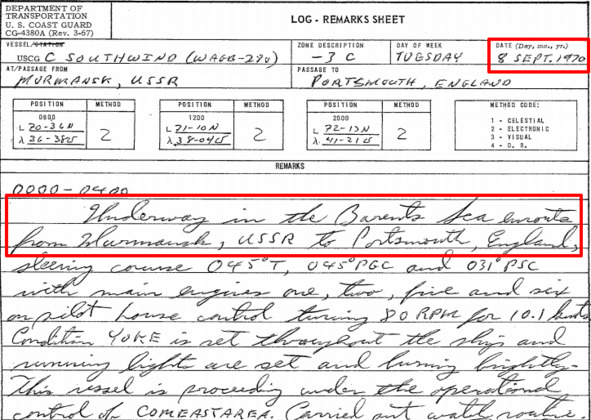 DEPARTMENT OF
TRANSPORTATION
U. S. COAST GUARD
CG-4380A (Rev. 3-67)
LOG - REMARKS SHEET
VESSEL/STATION
USCG C SOUTHWIND (WAGB-280)
ZONE DESCRIPTION
-3 C
DAY OF WEEK
TUESDAY
DATE (Day, mo., yr.)
8 SEPT. 1970
AT/PASSAGE FROM
MURMANSK, USSR
PASSAGE TO
PORTSMOUTH, ENGLAND
POSITION METHOD
0800
L 70-36N
λ 36-385
2
POSITION METHOD
1200
L 71-10N
λ 38-04
2
POSITION METHOD
2000
L 72-13N
λ 41-21
2
METHOD CODE:
1 - CELESTIAL
2 - ELECTRONIC
3 - VISUAL
4 - D. R.
REMARKS
0000-0400
Underway in the Barents Sea enroute
from Murmansk, USSR to Portsmouth, England,
steering course 045°T, 045°PGC and 031°PSC
with main engines one, two, five and six
on pilot house control turning 80 RPM for 10.1 knots
Condition YOKE is set throughout the ship and
running lights are set and burning brightly.
This vessel is proceeding under the operational
control of COMEASTAREA. Carried out watch routine.